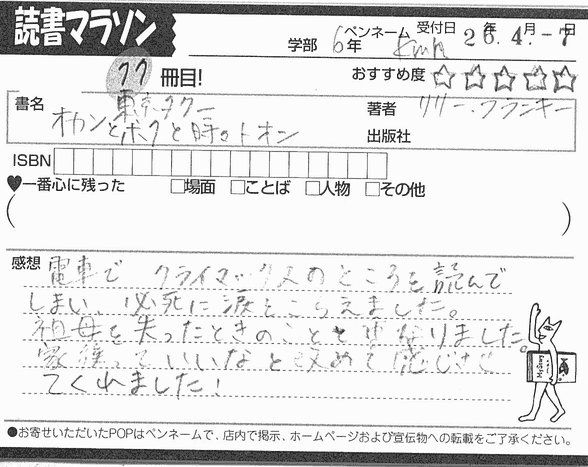 読書マラソン
学部 6年 ペンネーム kmn 受付日 26年4月-7日
77 冊目!
おすすめ度 ☆☆☆☆☆
書名 東京タワー
オカンとボクと時々オトン
著者 リリー・フランキー
出版社
ISBN
♥一番心に残った □場面 □ことば □人物 □その他
( )
感想 電車で クライマックスのところを読んで
しまい、必死に涙をこらえました。
祖母を失ったときのことと なりました。
家族っていいなと改めて感じさせ
てくれました!
●お寄せいただいたPOPはペンネームで、店内で掲示、ホームページおよび宣伝物への転載をご了承ください。